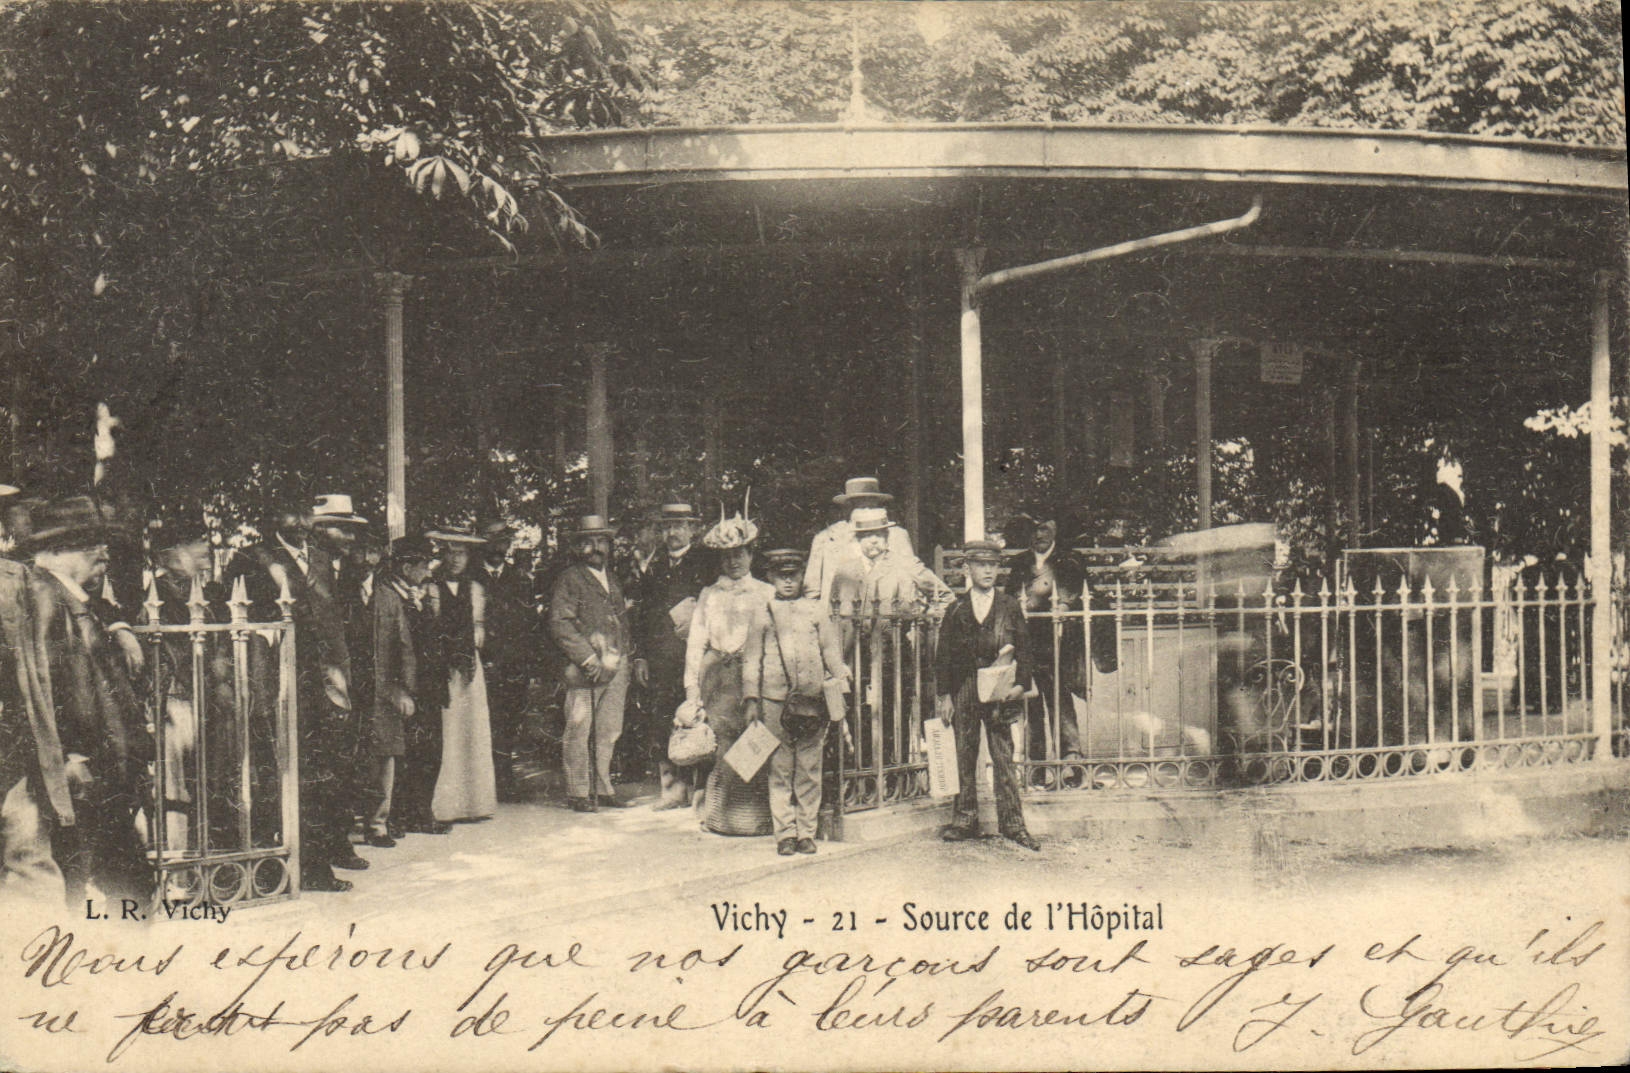 L. R. Vichy
Vichy - 21 - Source de l'Hôpital
Nous espérons que nos garçons sont sages et qu'ils
ne font pas de peine à leurs parents J. Gauthier